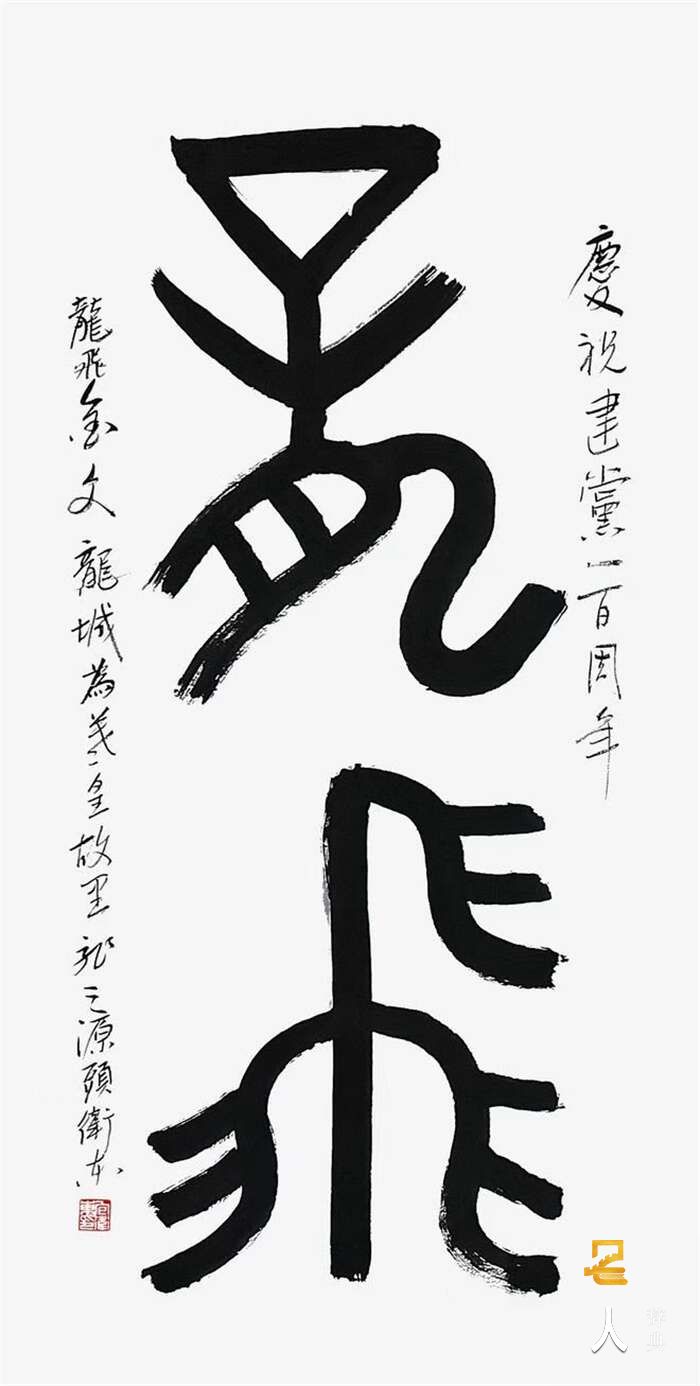 慶祝建黨一百周年
龍飛
龍飛金文 龍城為羲皇故里 龙之源頭 衛东
名人
辞典